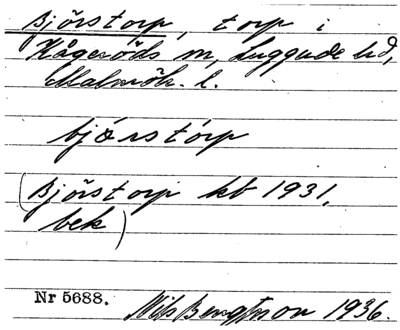 Björstorp, torp i
Kågeröds sn, Luggude hd,
Malmöh. l.
björstórp
(Björstorp kb 1931,
bek)
Nr 5688. Nils Bengtsson 1936.